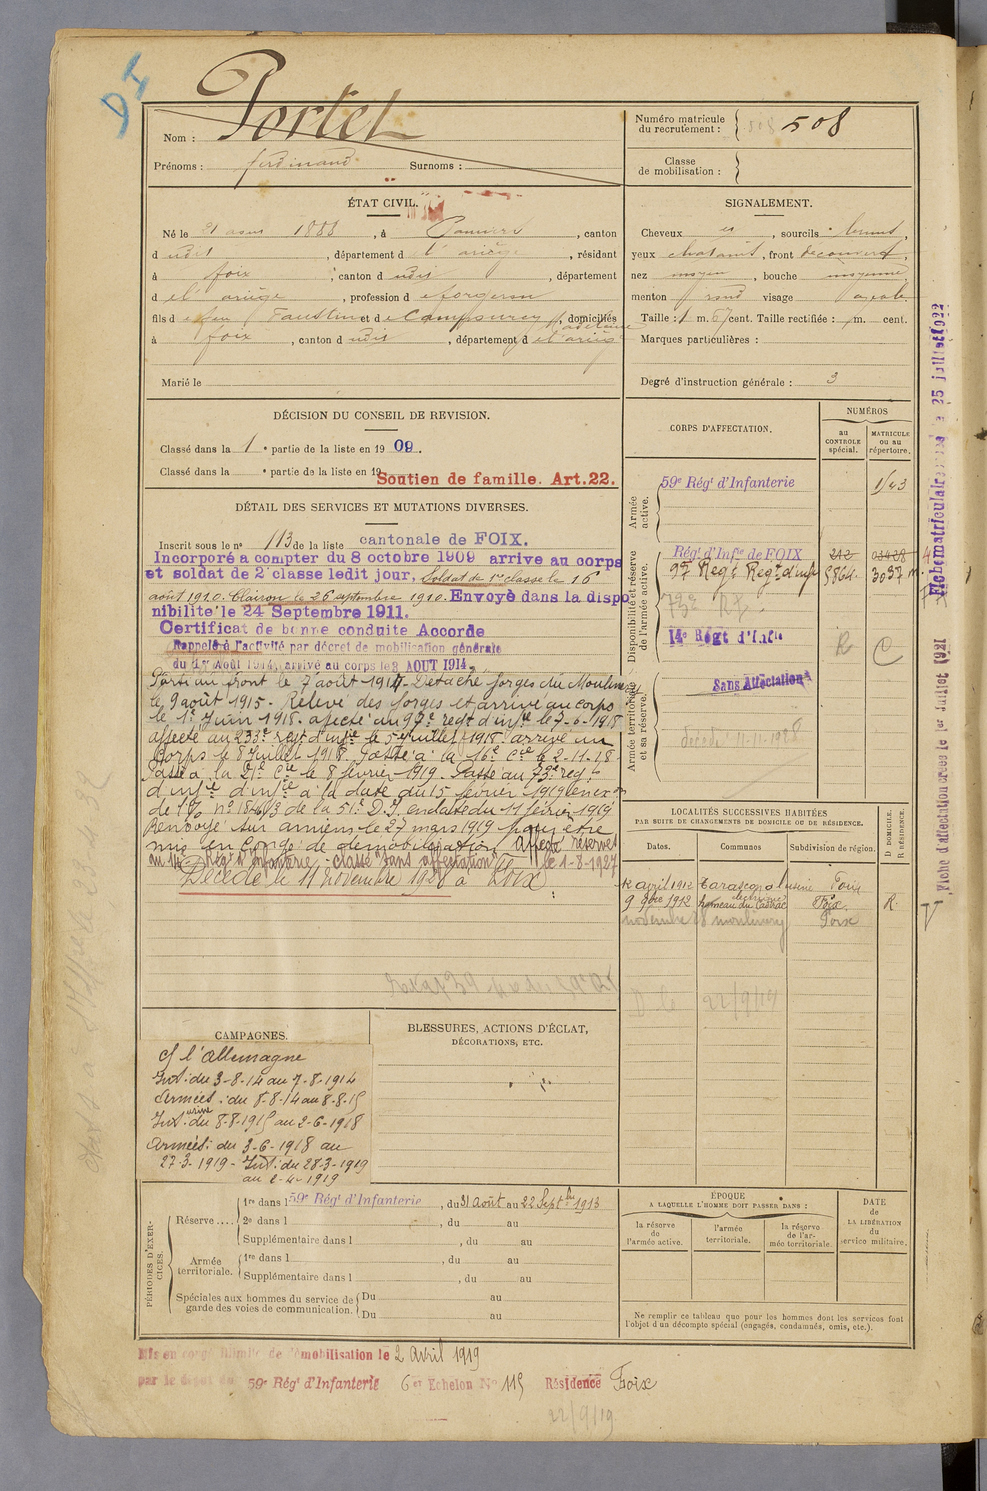 Portet
Nom :
Prénoms : Ferdinand Surnoms :
Numéro matricule du recrutement : 508
Classe de mobilisation :
ÉTAT CIVIL.
Né le 21 1888, à Pamiers, canton
dudit, département de l'ariège, résidant
à foix, canton dudit, département
de l'ariège, profession de forgeron
fils de feu Faustin et de, domiciliés
à foix, canton dudit, département de l'ariège
Marié le
SIGNALEMENT.
Cheveux et, sourcils bruns,
yeux chatains, front découvert,
nez moyen, bouche moyenne,
menton rond visage ovale
Taille : 1 m. 67 cent. Taille rectifiée : m. cent.
Marques particulières :
Degré d'instruction générale : 3
DÉCISION DU CONSEIL DE REVISION.
Classé dans la 1e partie de la liste en 1909.
Classé dans la e partie de la liste en 19
Soutien de famille. Art.22.
DÉTAIL DES SERVICES ET MUTATIONS DIVERSES.
Inscrit sous le no 113 de la liste cantonale de FOIX.
Incorporé a compter du 8 octobre 1909 arrive au corps
et soldat de 2e classe ledit jour, Soldat de 1re classe le 16
août 1910. Clairon le 26 septembre 1910. Envoyé dans la dispo
nibilite le 24 Septembre 1911.
Certificat de bonne conduite Accorde
Rappelé à l'activité par décret de mobilisation générale
du 1er Août 1914, arrivé au corps le 3 AOUT 1914.
Parti au front le 7 août 1914. Détaché forges du Moulinery
le 9 août 1915. Relevé des forges et arrivé au corps
le 1er Juin 1918. affecté au 9e regt d'infie le 7-6-1918
affecté au 233e regt d'infie le 5 juillet 1918 arrivé au
Corps le 8 juillet 1918. Passé à la 16e Cie le 2-11-18.
Passé à la 21e Cie le 8 février 1919. Passé au 73e regt
d'infie à la date du 15 février 1919 en exon
de la de la 51e D.I. en date du 11 février 1919
Renvoyé sur amiens le 27 mars 1919 pour être
mis en congé de démobilisation Affecté réserve
au 14e Régt d'Infanterie - classé "sans affectation" le 1-8-1927
Décédé le 11 novembre 1928 à Foix
CORPS D'AFFECTATION.
NUMÉROS
au CONTROLE spécial.
MATRICULE ou au répertoire.
Armée active.
59e Régt d'Infanterie
Disponibilité et réserve de l'armée active.
Régt d'Infie de FOIX 212
9e Regt d'infie 3037
14e Régt d'Infie R C
Armée territoriale et sa réserve.
Sans Affectation
décédé 11-11-1928
LOCALITÉS SUCCESSIVES HABITÉES
PAR SUITE DE CHANGEMENTS DE DOMICILE OU DE RÉSIDENCE.
Dates. Communes Subdivision de région. D DOMICILE. R RÉSIDENCE.
12 avril 1912 Tarascon usine Foix
électrique
9 9bre 1912 hameau du Castrac Foix R.
novembre Foix
22/9/19
CAMPAGNES.
C/ l'allemagne
Int. du 3-8-14 au 7-8-1914
Armées : du 8-8-14 au 8-8-15
usine
Int. du 8-8-1915 au 2-6-1918
Armées : du 3-6-1918 au
27-3-1919 - Int. du 28-3-1919
au 2-4-1919
BLESSURES, ACTIONS D'ÉCLAT,
DÉCORATIONS, ETC.
PÉRIODES D'EXERCICES.
Réserve....
1re dans l 59e Régt d'Infanterie, du 31 Août au 22 Septbre 1913
2e dans l, du au
Supplémentaire dans l, du au
Armée territoriale.
1re dans l, du au
Supplémentaire dans l, du au
Spéciales aux hommes du service de garde des voies de communication.
Du au
Du au
ÉPOQUE
A LAQUELLE L'HOMME DOIT PASSER DANS :
la réserve de l'armée active.
l'armée territoriale.
la réserve de l'armée territoriale.
DATE de LA LIBÉRATION du service militaire.
Ne remplir ce tableau que pour les hommes dont les services font
l'objet d'un décompte spécial (engagés, condamnés, omis, etc.).
Mis en congé illimité de démobilisation le 2 avril 1919
par le dépôt du 59e Régt d'Infanterie 6e Echelon No 115 Résidence Foix
22/9/19.
Fiche matriculaire 25 juillet 1922
Fiche d'affectation créée le 1er Juillet 1921